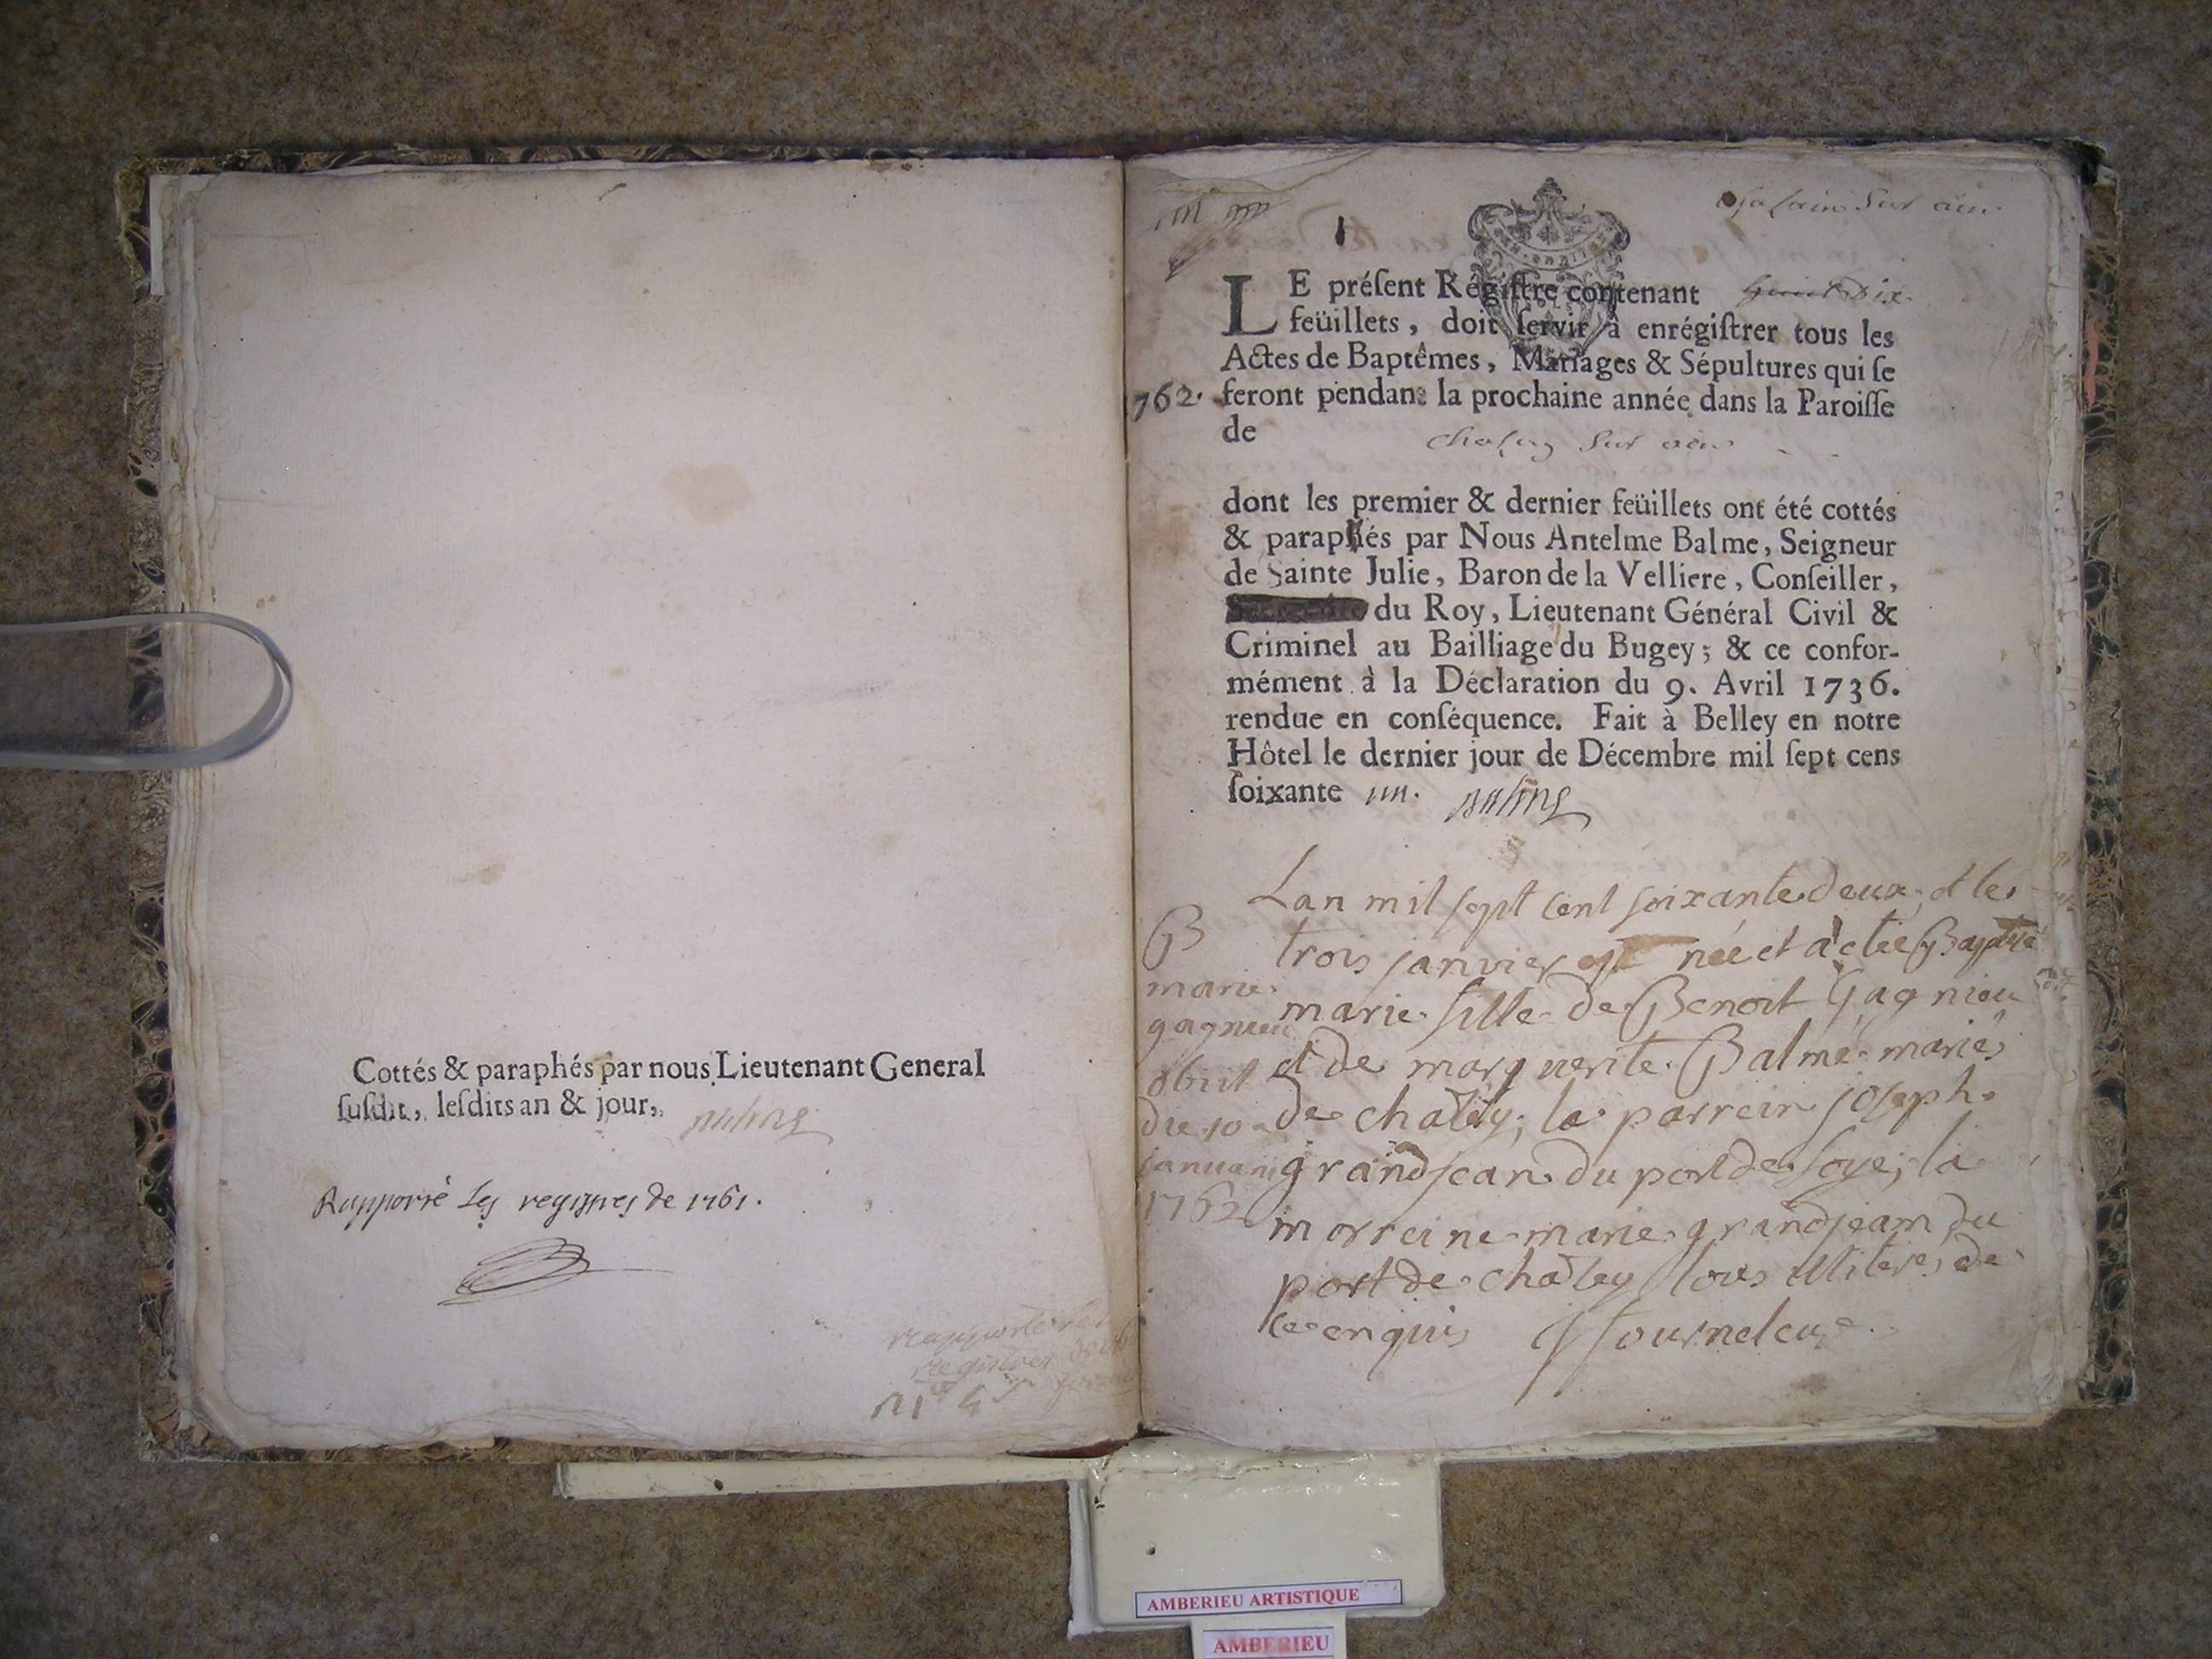 Cottés & paraphés par nous Lieutenant General
ſuſdit, leſdits an & jour,
Rapporté Les regiſtres de 1761.
Sur ain
1
LE préſent Régiſtre contenant dix
feüillets, doit ſervir à enrégiſtrer tous les
Actes de Baptêmes, Mariages & Sépultures qui ſe
762. feront pendant la prochaine année dans la Paroiſſe
de Sur ain
dont les premier & dernier feüillets ont été cottés
& paraphés par Nous Antelme Balme, Seigneur
de Sainte Julie, Baron de la Velliere, Conſeiller,
du Roy, Lieutenant Général Civil &
Criminel au Bailliage du Bugey; & ce confor-
mément à la Déclaration du 9. Avril 1736.
rendue en conſéquence. Fait à Belley en notre
Hôtel le dernier jour de Décembre mil ſept cens
ſoixante un.
B
marie
gagnieu
obiit
die 10a
januarii
1762
Lan mil sept cent soixante deux et le
trois janvier est née et a etté Baptisé
marie fille de Benoit Gagnieu
et de marguerite Balme mariés
de chaley; le parrein joseph
grandjean du port de loye; la
morreine marie grandjean du
port de chaley tous illiterés de
ce enquis
AMBERIEU ARTISTIQUE
AMBERIEU